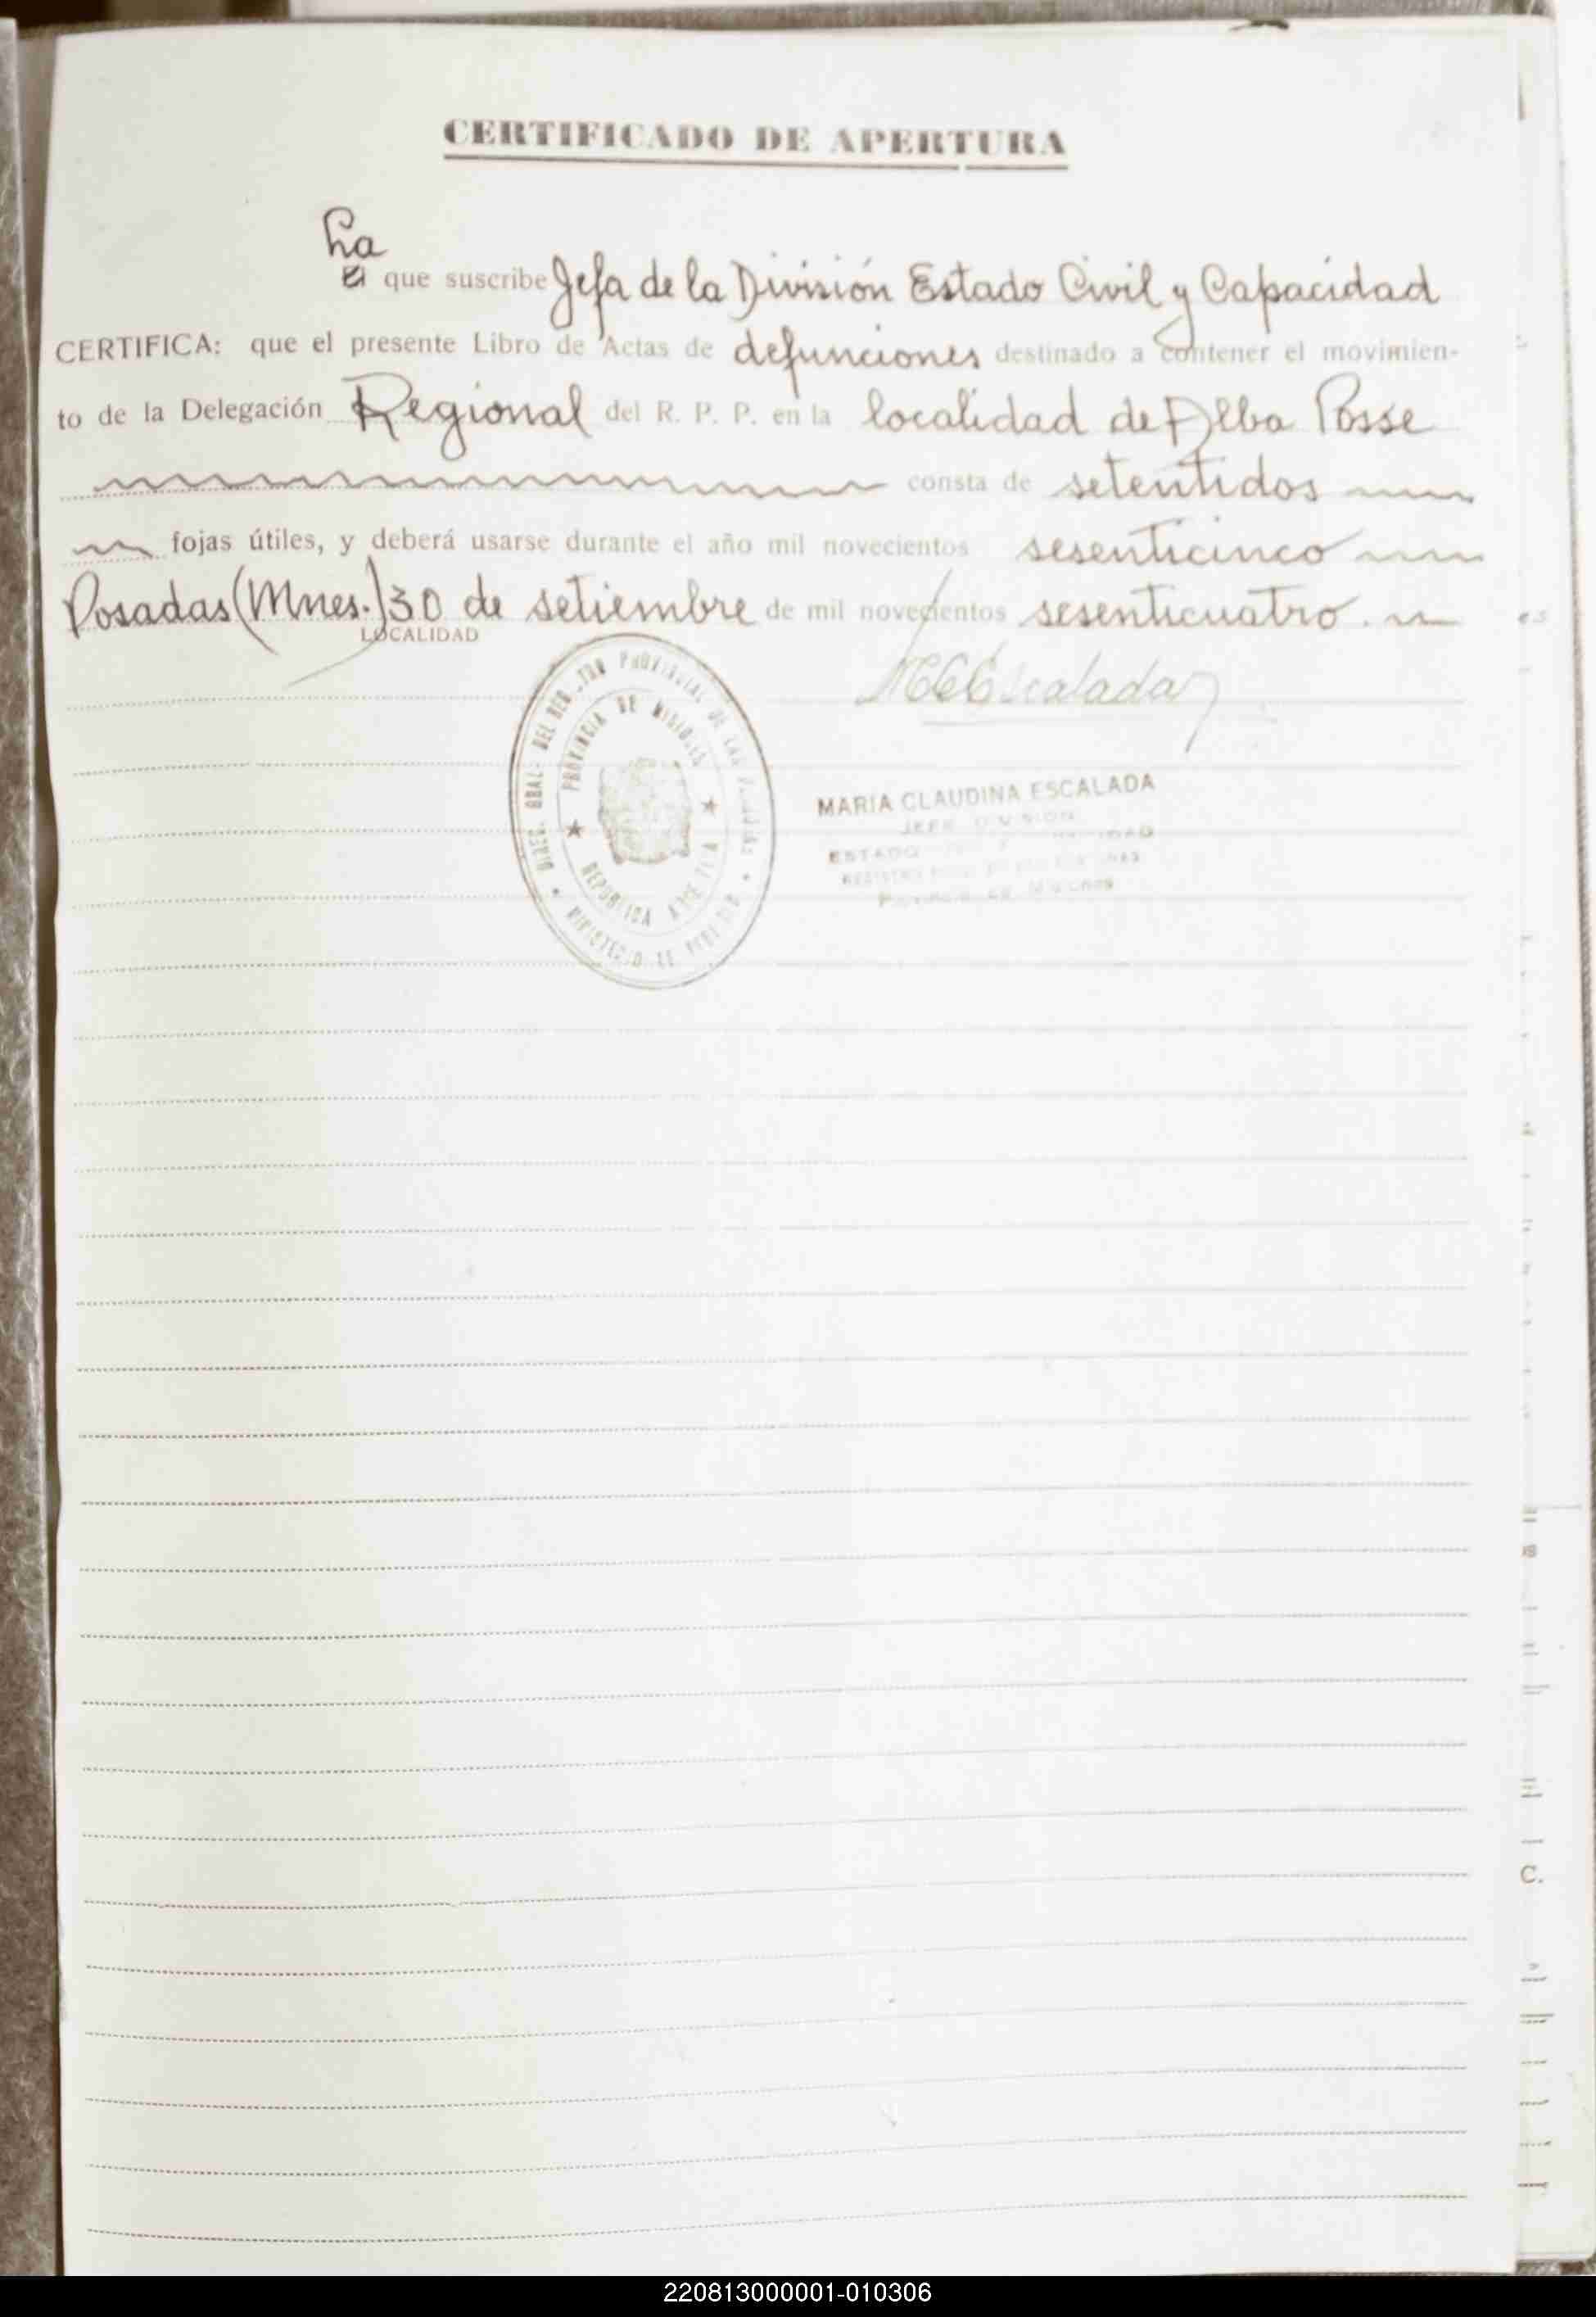 CERTIFICADO DE APERTURA
La
El que suscribe Jefa de la División Estado Civil y Capacidad
CERTIFICA: que el presente Libro de Actas de defunciones destinado a contener el movimien-
to de la Delegación Regional del R. P. P. en la localidad de Alba Posse
consta de setentidos
fojas útiles, y deberá usarse durante el año mil novecientos sesenticinco
Posadas (Mnes.) 30 de setiembre de mil novecientos sesenticuatro.
LOCALIDAD
MCEscalada
DIREC. GRAL. DEL REGISTRO PROVINCIAL DE LAS PERSONAS
PROVINCIA DE MISIONES
REPUBLICA ARGENTINA
MINISTERIO DE GOBIERNO
MARIA CLAUDINA ESCALADA
JEFE DIVISION
ESTADO
PROVINCIA DE MISIONES
C.
220813000001-010306